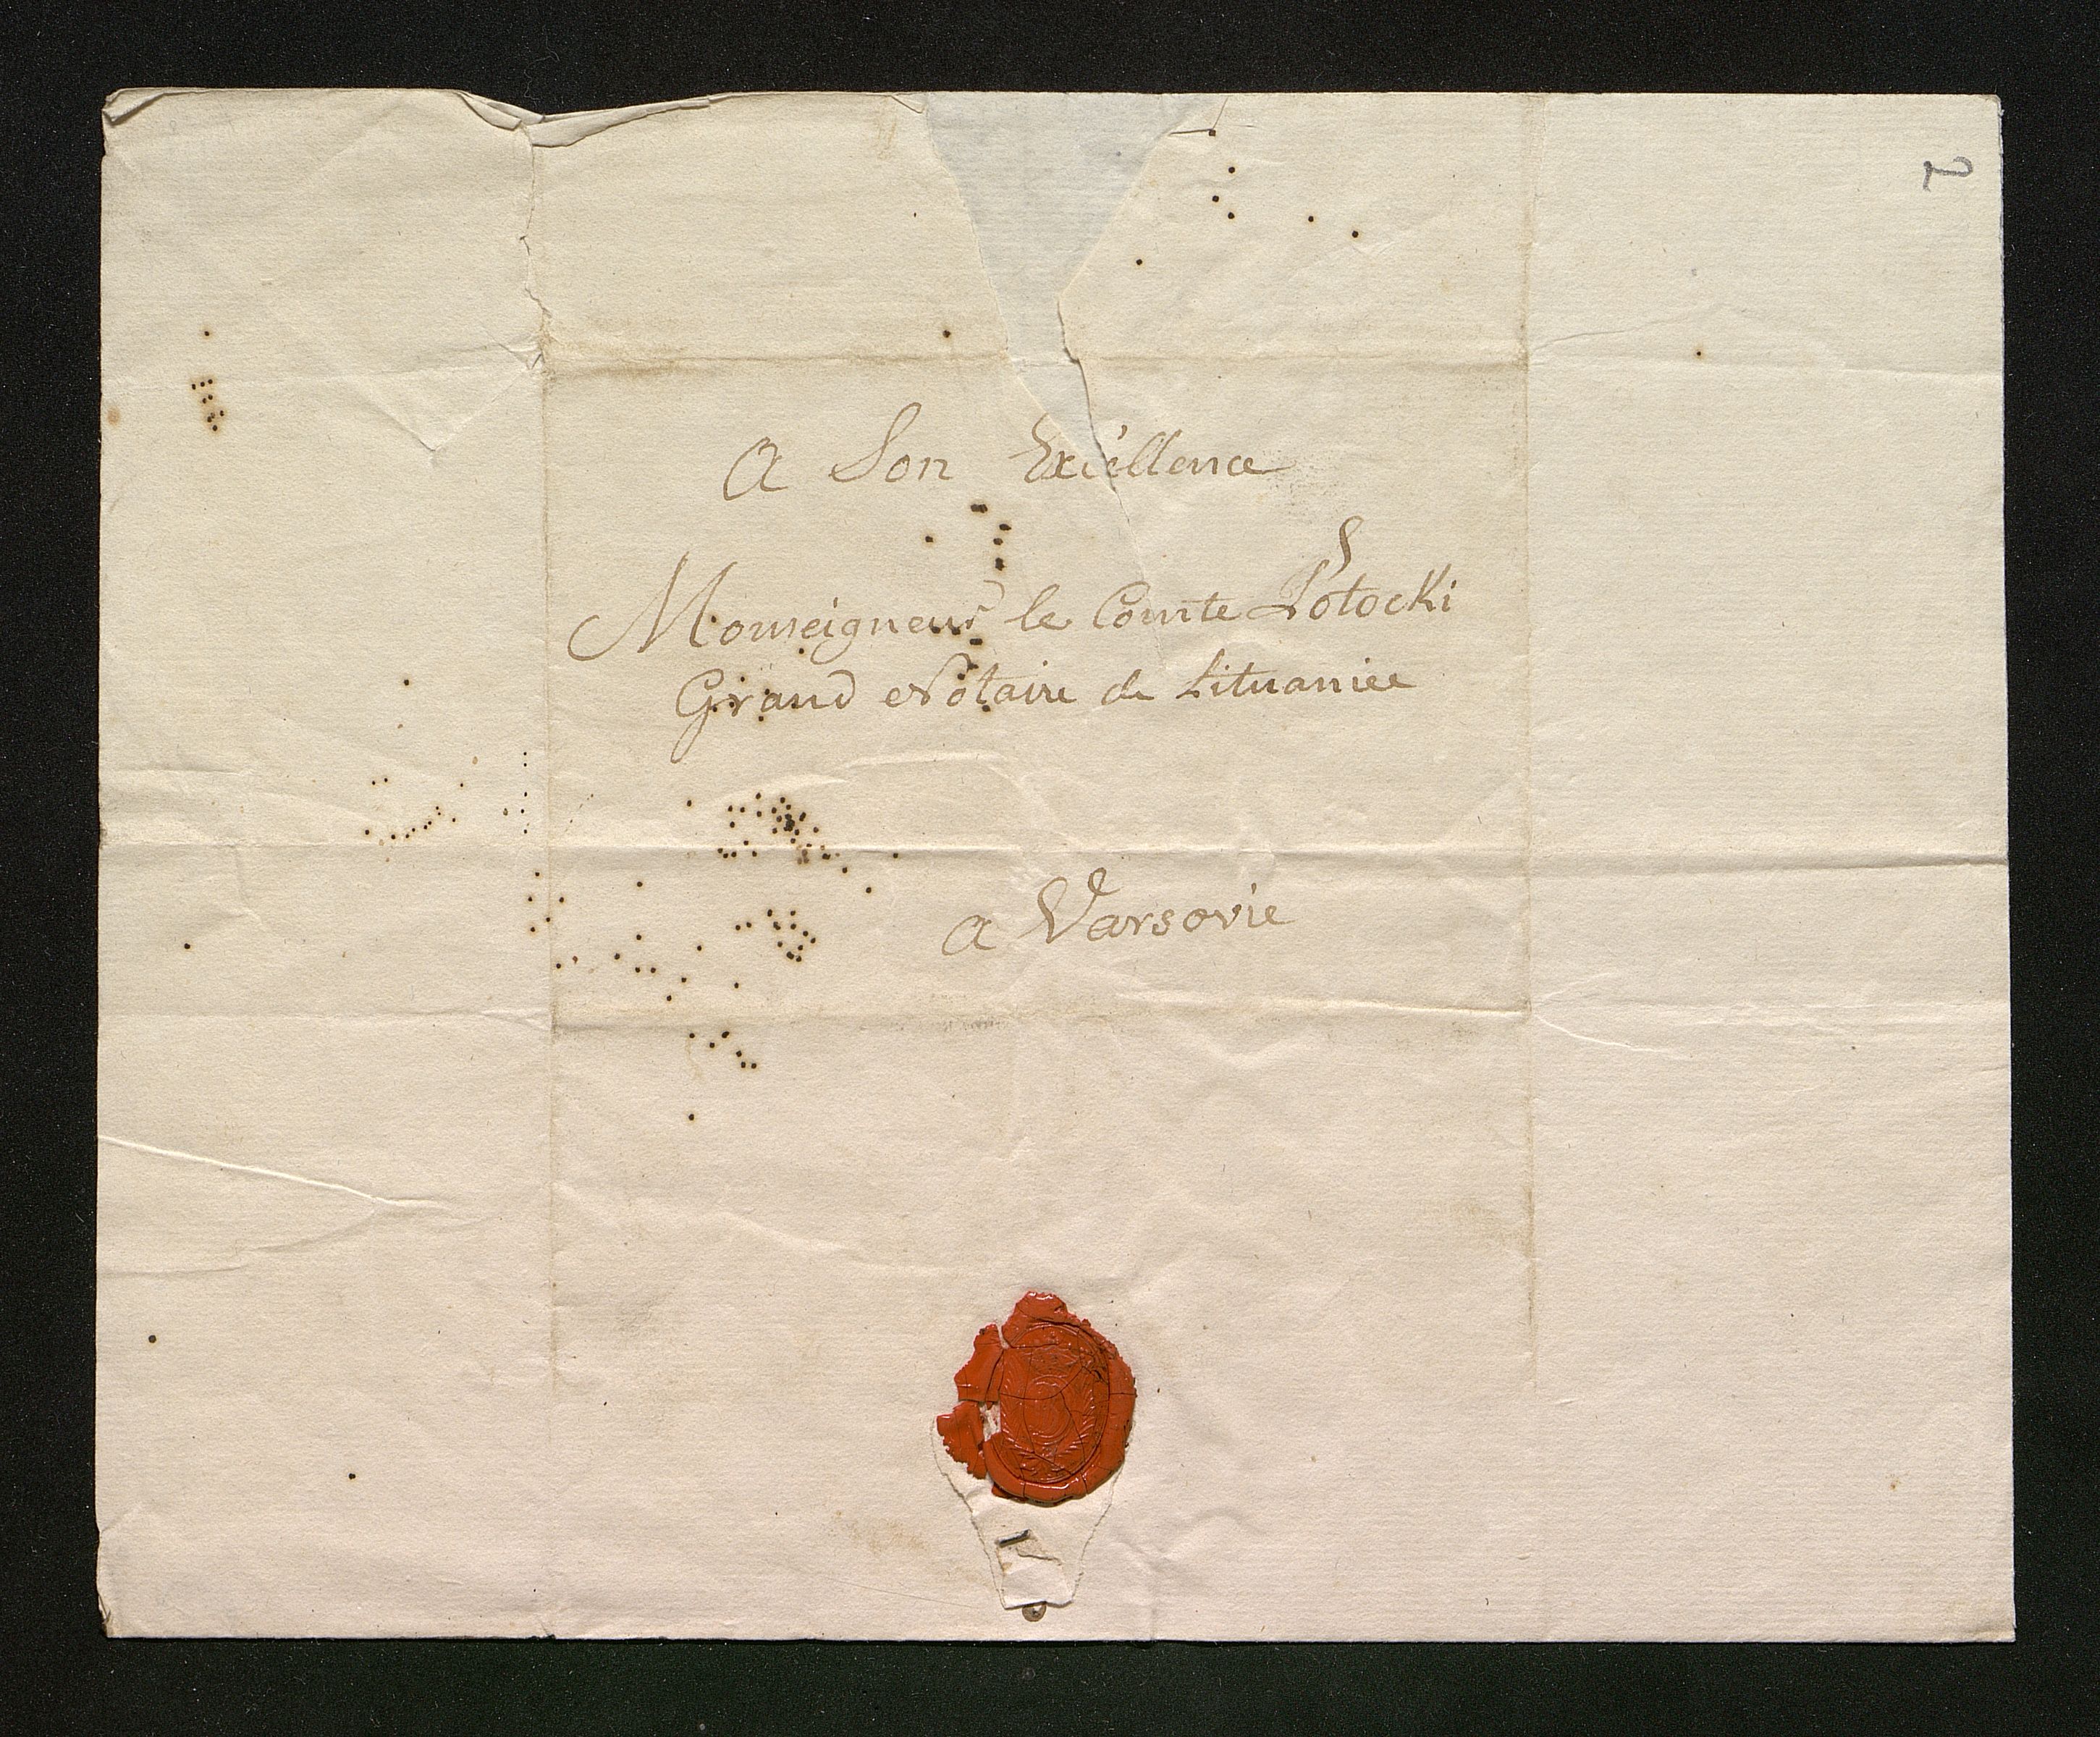 2
A Son Excéllence
Monseigneur le Comte Potocki
Grand Notaire de Lituaniee
a Varsovie